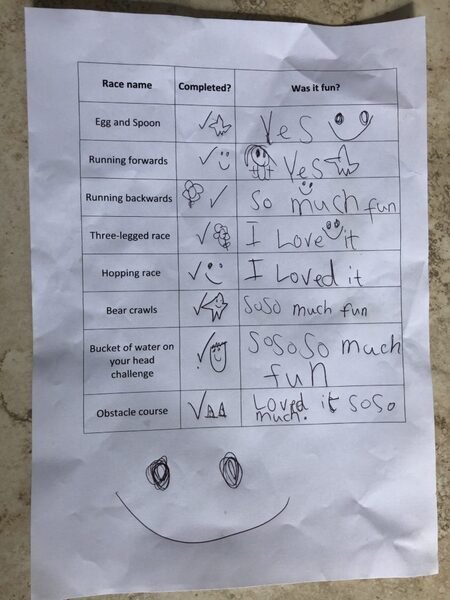 Race name Completed? Was it fun?
Egg and Spoon ✓ Yes
Running forwards ✓ Yes
Running backwards ✓ So much fun
Three-legged race ✓ I Love it
Hopping race ✓ I Loved it
Bear crawls ✓ SoSo much fun
Bucket of water on
your head
challenge ✓ SoSoSo much
fun
Obstacle course ✓ Loved it SoSo
much.